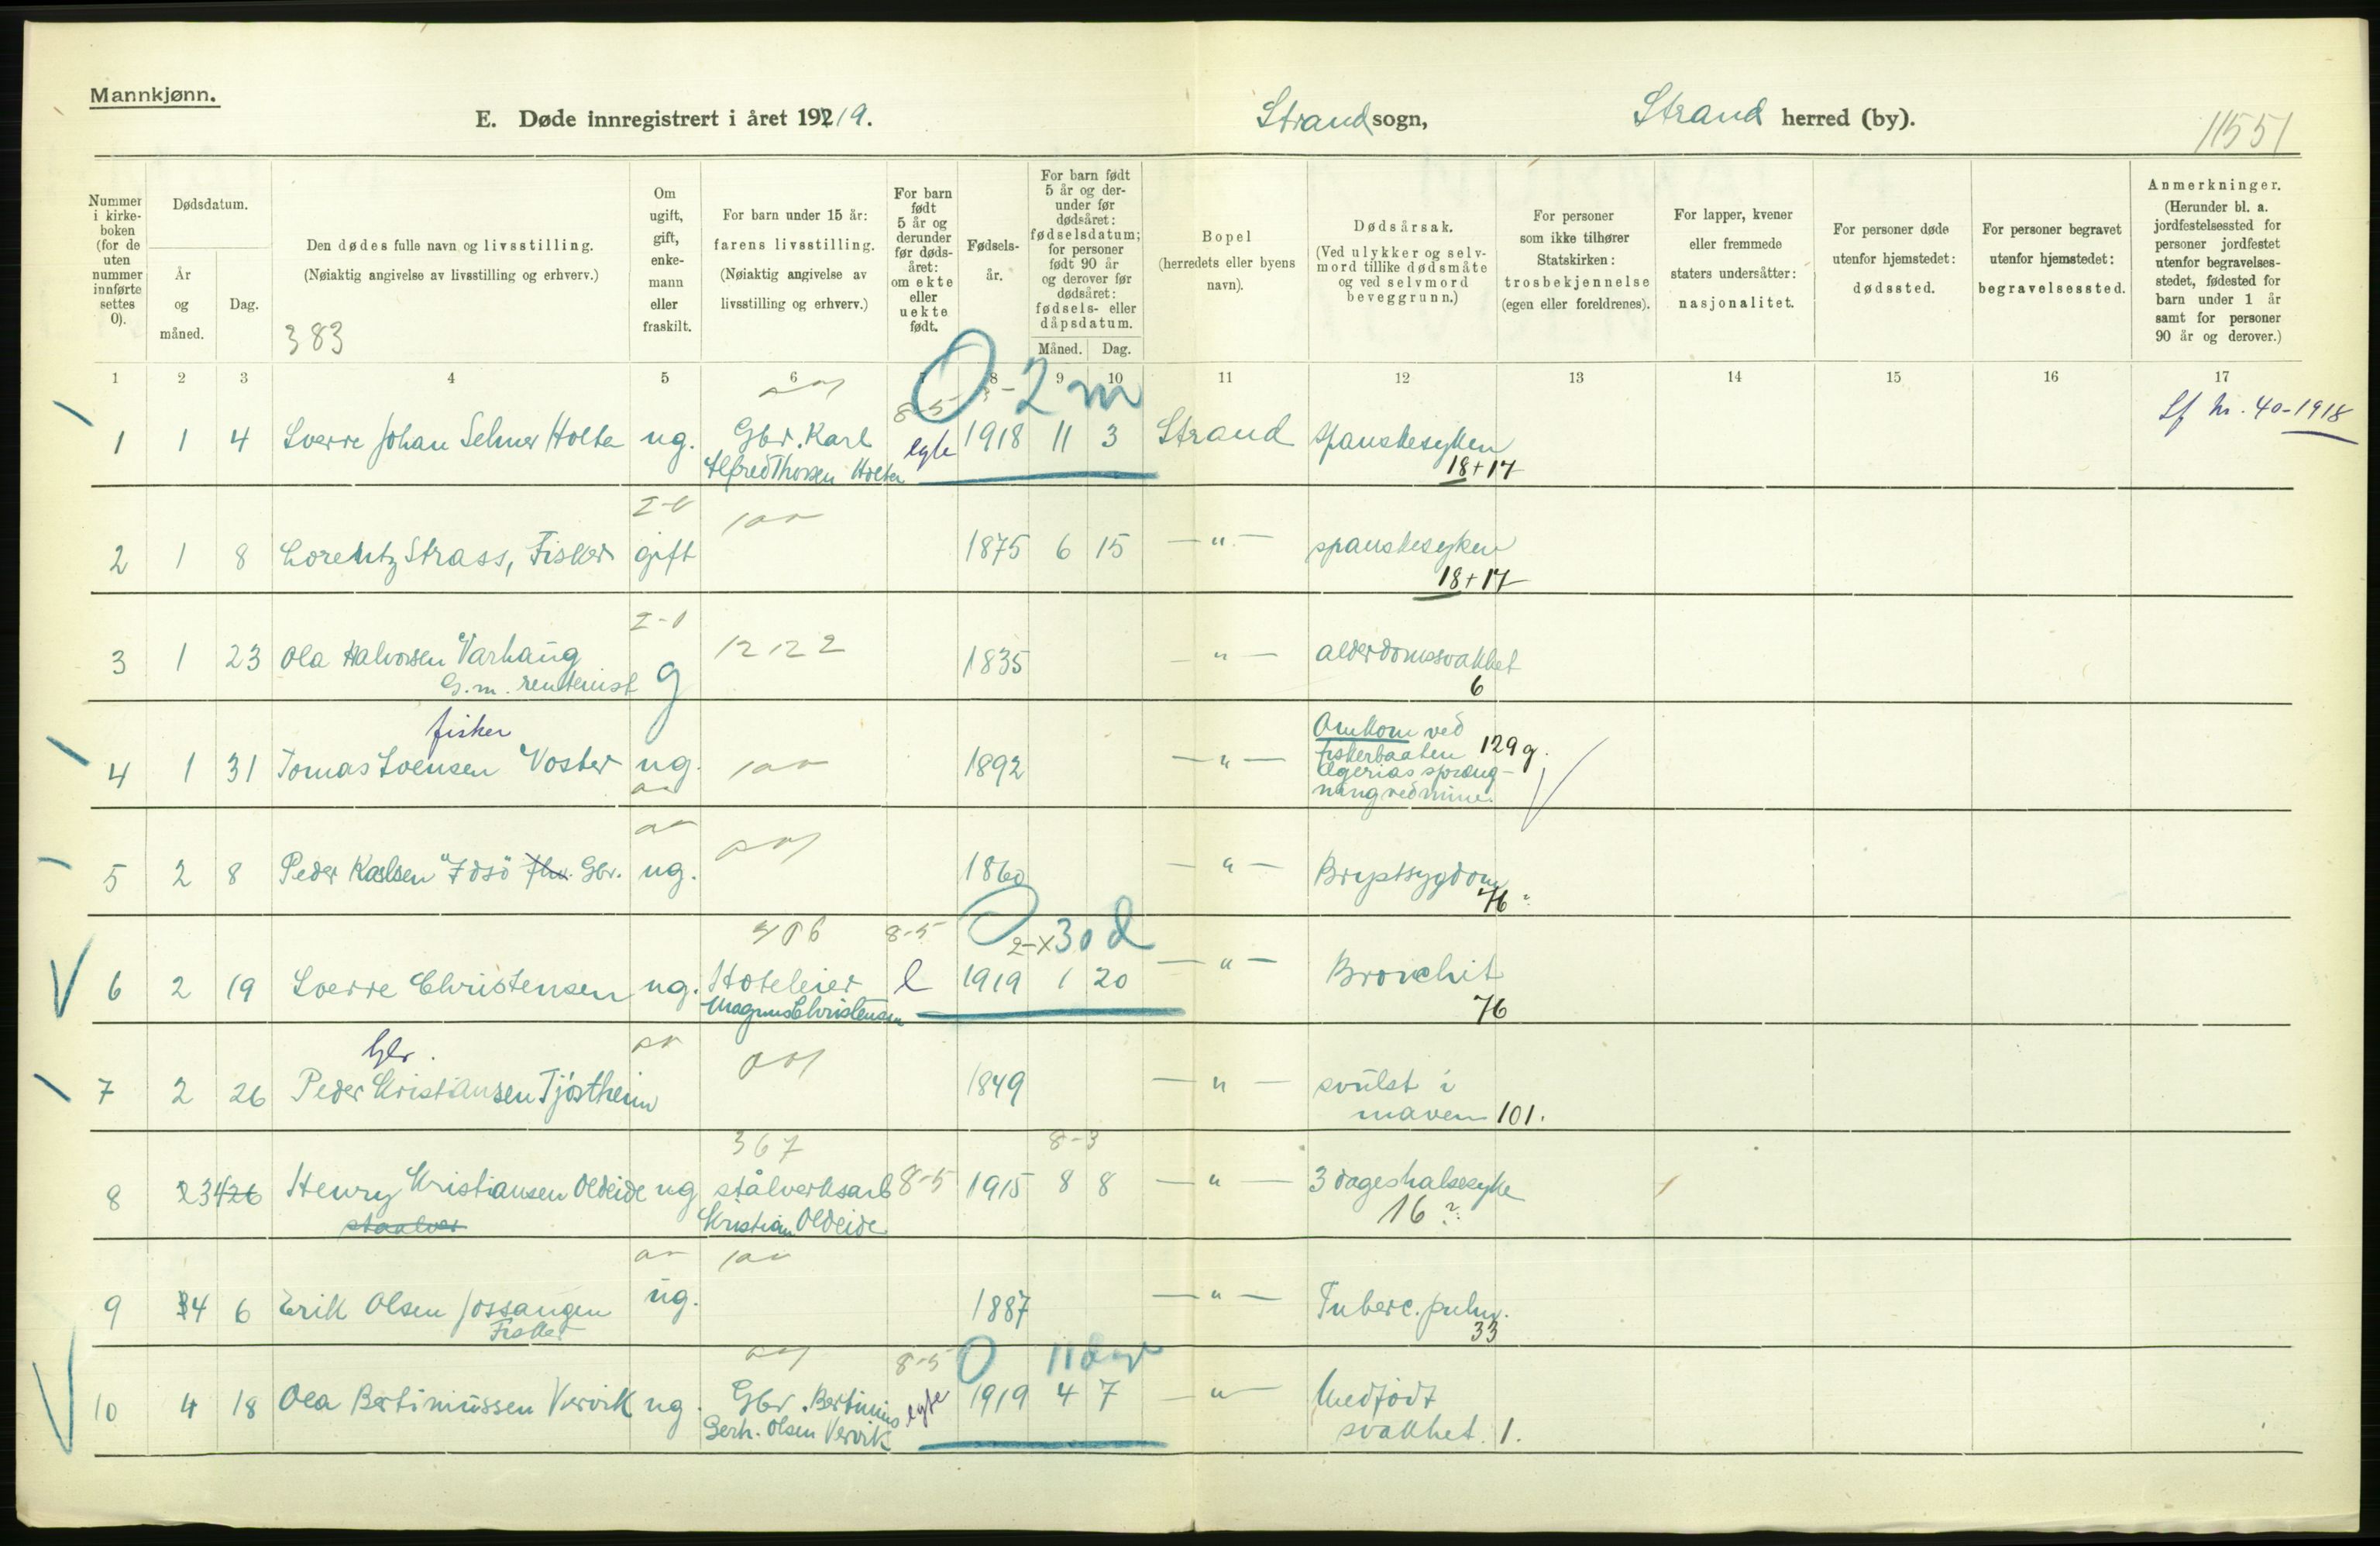 Mannkjønn.
E. Døde innregistrert i året 19219.
Strand sogn,
Strand herred (by).
11551
Nummer i kirkeboken (for de uten nummer innførte settes 0).
Dødsdatum.
År og måned.
Dag.
Den dødes fulle navn og livsstilling.
(Nøiaktig angivelse av livsstilling og erhverv.)
383
Om ugift, gift, enkemann eller fraskilt.
For barn under 15 år: farens livsstilling.
(Nøiaktig angivelse av livsstilling og erhverv.)
For barn født 5 år og derunder før dødsåret: om ekte eller uekte født.
Fødselsår.
For barn født 5 år og derunder før dødsåret: fødselsdatum; for personer født 90 år og derover før dødsåret: fødsels- eller dåpsdatum.
Måned.
Dag.
Bopel (herredets eller byens navn).
Dødsårsak.
(Ved ulykker og selvmord tillike dødsmåte og ved selvmord beveggrunn.)
For personer som ikke tilhører Statskirken: trosbekjennelse (egen eller foreldrenes).
For lapper, kvener eller fremmede staters undersåtter: nasjonalitet.
For personer døde utenfor hjemstedet: dødssted.
For personer begravet utenfor hjemstedet: begravelsessted.
Anmerkninger.
(Herunder bl. a. jordfestelsessted for personer jordfestet utenfor begravelsesstedet, fødested for barn under 1 år samt for personer 90 år og derover.)
1 2 3 4 5 6 7 8 9 10 11 12 13 14 15 16 17
8-5 0 2 m
1 1 4 Sverre Johan Selmer Holta ug. Gbr. Karl egte 1918 11 3 Strand Spanskesyken Lf nr. 40-1918
Alfred Thorsen Holta 18+17
2 1 8 Lorentz Strass, Fisker gift 1875 6 15 — " — spanskesyken
18+17
1222
3 1 23 Ola Halvorsen Varhaug g 1835 — " — alderdomssvakhet
G.m. rentenist 6
fisker
4 1 31 Tomas Svensen Voster ug. 1892 — " — Omkom ved
fiskerbaaten 129g.
Ægerias spræng-
ning ved mine.
5 2 8 Peder Karlsen Idsö Gbr. ug. 1860 — " — Brystsygdom
76
306 8-5 0 2-x 30 d
6 2 19 Sverre Christensen ug. Hoteleier l 1919 1 20 — " — Bronchit
Magnus Christensen 76
Gbr.
7 2 26 Peder Kristiansen Tjöstheim 1849 — " — svulst i
maven 101.
367 8-3
8 2 3 4 26 Henry Kristiansen Oldeide ug stålverksarb 8-5 1915 8 8 — " — 3 dages halssyke
staalver Kristian Oldeide 16?
9 4 6 Erik Olsen Jossangen ug. 1887 — " — Tuberc. pulm.
Fisker 33
8-5 0 11 dage
10 4 18 Ola Bertiniussen Vervik ug. Gbr. Bertinius egte 1919 4 7 — " — Medfödt
Berh. Olsen Vervik svakhet. 1.